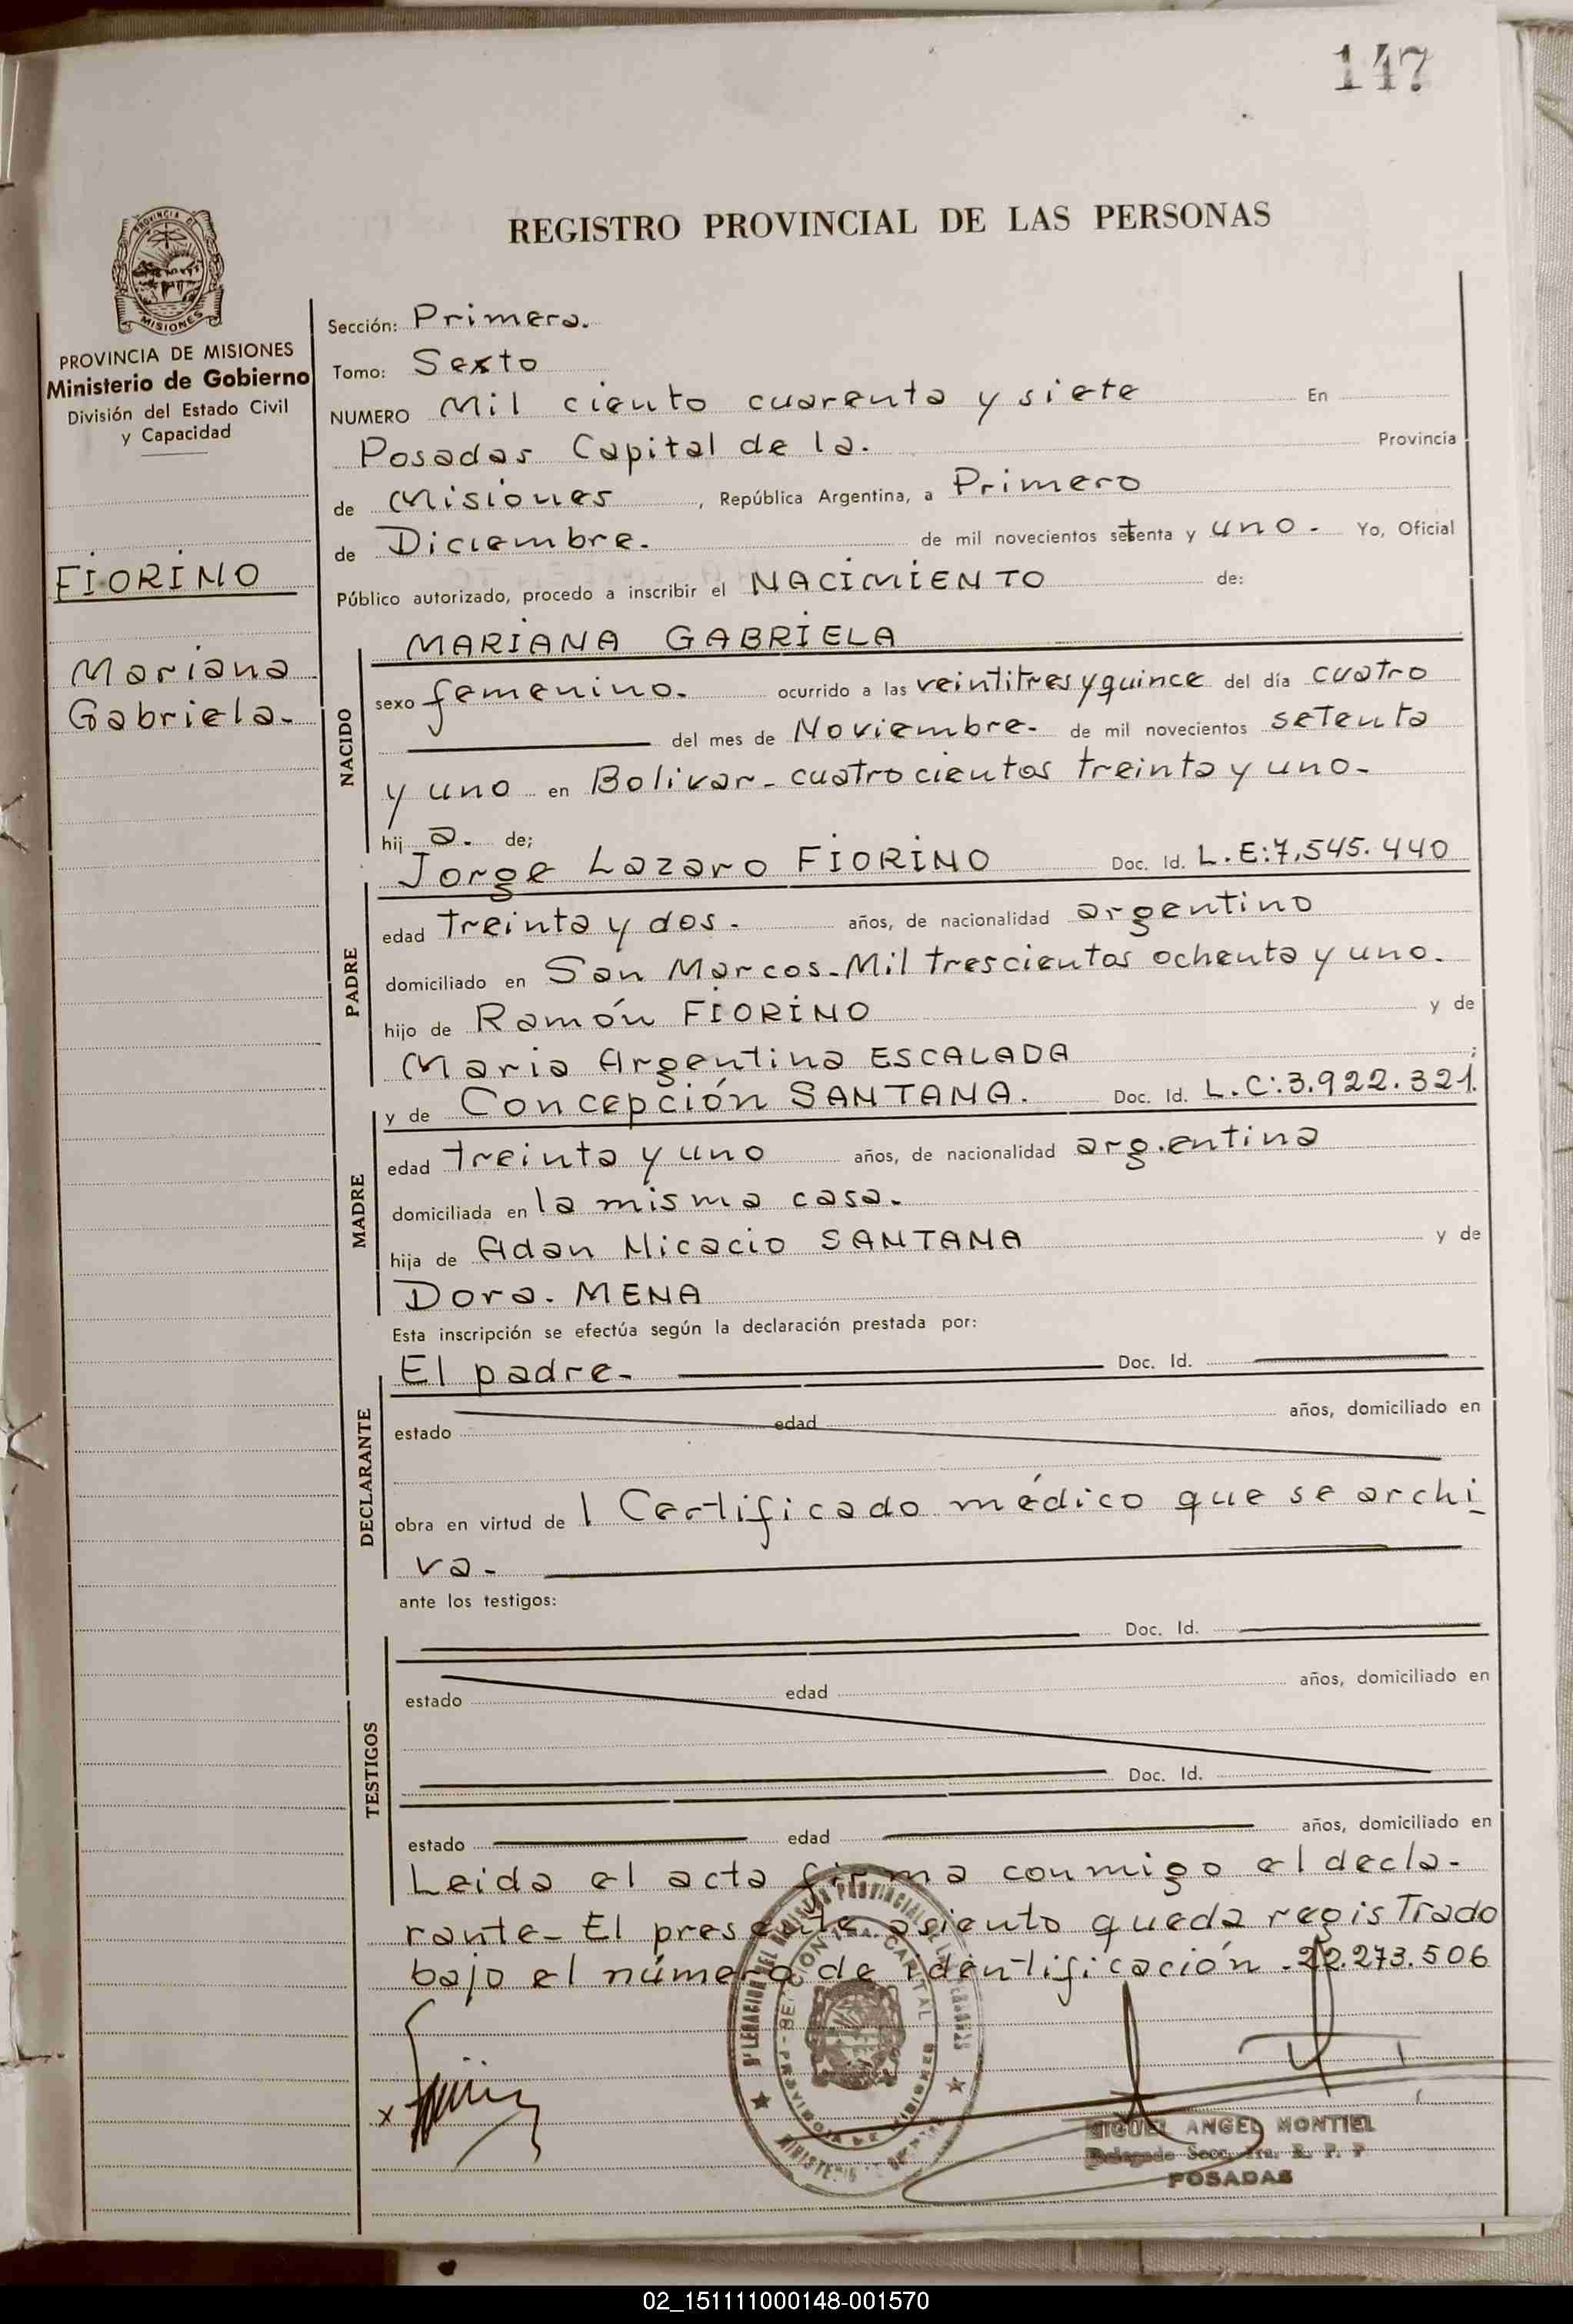 147
REGISTRO PROVINCIAL DE LAS PERSONAS
PROVINCIA DE MISIONES
Ministerio de Gobierno
División del Estado Civil
y Capacidad
FIORINO
Mariana
Gabriela.
Sección: Primera.
Tomo: Sexto
NUMERO Mil ciento cuarenta y siete En
Posadas Capital de la. Provincia
de Misiones, República Argentina, a Primero
de Diciembre. de mil novecientos setenta y uno. Yo, Oficial
Público autorizado, procedo a inscribir el NACIMIENTO de:
NACIDO
MARIANA GABRIELA
sexo femenino. ocurrido a las veintitres y quince del día cuatro
del mes de Noviembre. de mil novecientos setenta
y uno en Bolivar- cuatrocientos treinta y uno-
hij a. de;
PADRE
Jorge Lazaro FIORINO Doc. Id. L.E:7.545.440
edad treinta y dos. años, de nacionalidad argentino
domiciliado en San Marcos-Mil trescientos ochenta y uno.
hijo de Ramón FIORINO y de
Maria Argentina ESCALADA ;
MADRE
y de Concepción SANTANA. Doc. Id. L.C:3.922.321.
edad treinta y uno años, de nacionalidad argentina
domiciliada en la misma casa.
hija de Adan Nicacio SANTANA y de
Dora. MENA
Esta inscripción se efectúa según la declaración prestada por:
DECLARANTE
El padre- Doc. Id.
estado edad años, domiciliado en
obra en virtud de 1 Certificado médico que se archi-
va-
ante los testigos:
TESTIGOS
Doc. Id.
estado edad años, domiciliado en
Doc. Id.
estado edad años, domiciliado en
Leida el acta firma conmigo el decla-
rante- El presente asiento queda registrado
bajo el número de identificación -22.273.506
MIGUEL ANGEL MONTIEL
Delegado Secc. 1ra. R. P. P
POSADAS
02_151111000148-001570